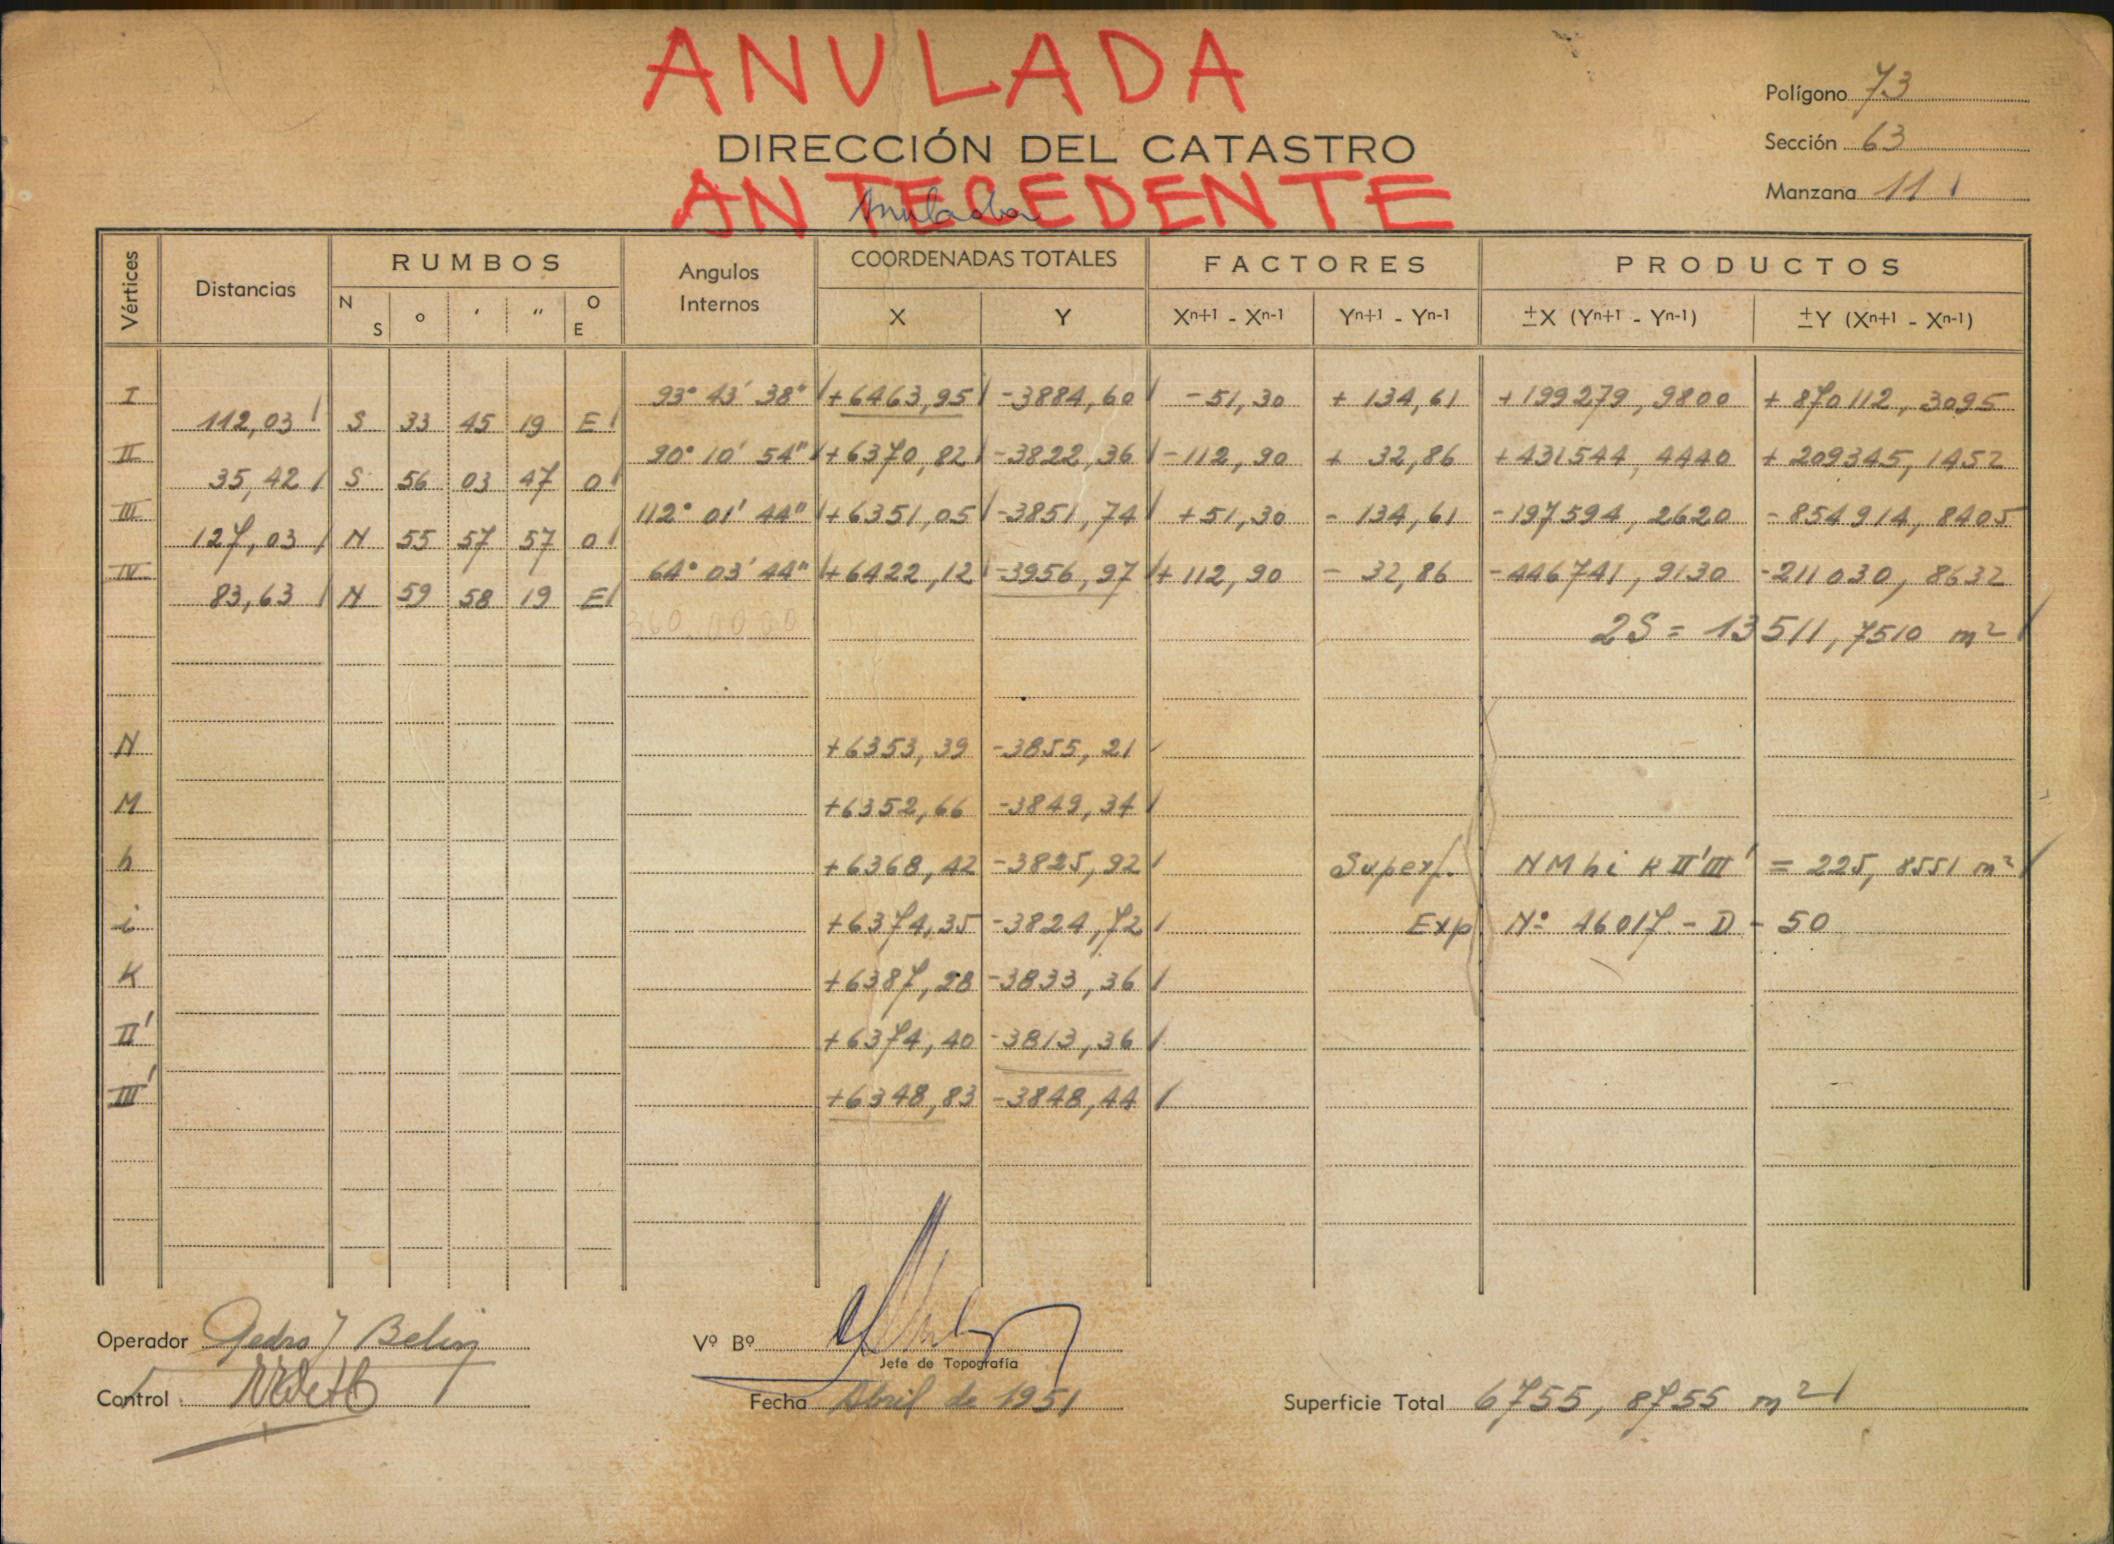 ANULADA
Polígono 73
DIRECCIÓN DEL CATASTRO
Sección 63
ANTECEDENTE
Anulada
Manzana 11
Vértices Distancias RUMBOS Angulos Internos COORDENADAS TOTALES FACTORES PRODUCTOS
N S ° ′ ″ O E X Y Xn+1 - Xn-1 Yn+1 - Yn-1 ±X (Yn+1 - Yn-1) ±Y (Xn+1 - Xn-1)
I 93° 43′ 38″ +6463,95 -3884,60 -51,30 + 134,61 +199279,9800 + 870112,3095
112,03 S 33 45 19 E
II 90° 10′ 54″ +6370,82 -3822,36 -112,90 + 32,86 +431544,4440 + 209345,1452
35,42 S 56 03 47 O
III 112° 01′ 44″ +6351,05 -3851,74 +51,30 - 134,61 -197594,2620 -854914,8405
127,03 N 55 57 57 O
IV 64° 03′ 44″ +6422,12 -3956,97 +112,90 - 32,86 -446741,9130 -211030,8632
83,63 N 59 58 19 E
360.00 00
2S = 13511,7510 m²
N +6353,39 -3855,21
M +6352,66 -3849,34
h +6368,42 -3825,92 Superf. NMhi K II′III′ = 225,8551 m²
i +6374,35 -3824,72 Exp Nº 46017 - D - 50
K +6387,28 -3833,36
II′ +6374,40 -3813,36
III′ +6348,83 -3848,44
Operador Pedro J Belin
Vº Bº
Jefe de Topografía
Control
Fecha Abril de 1951
Superficie Total 6755,8755 m²